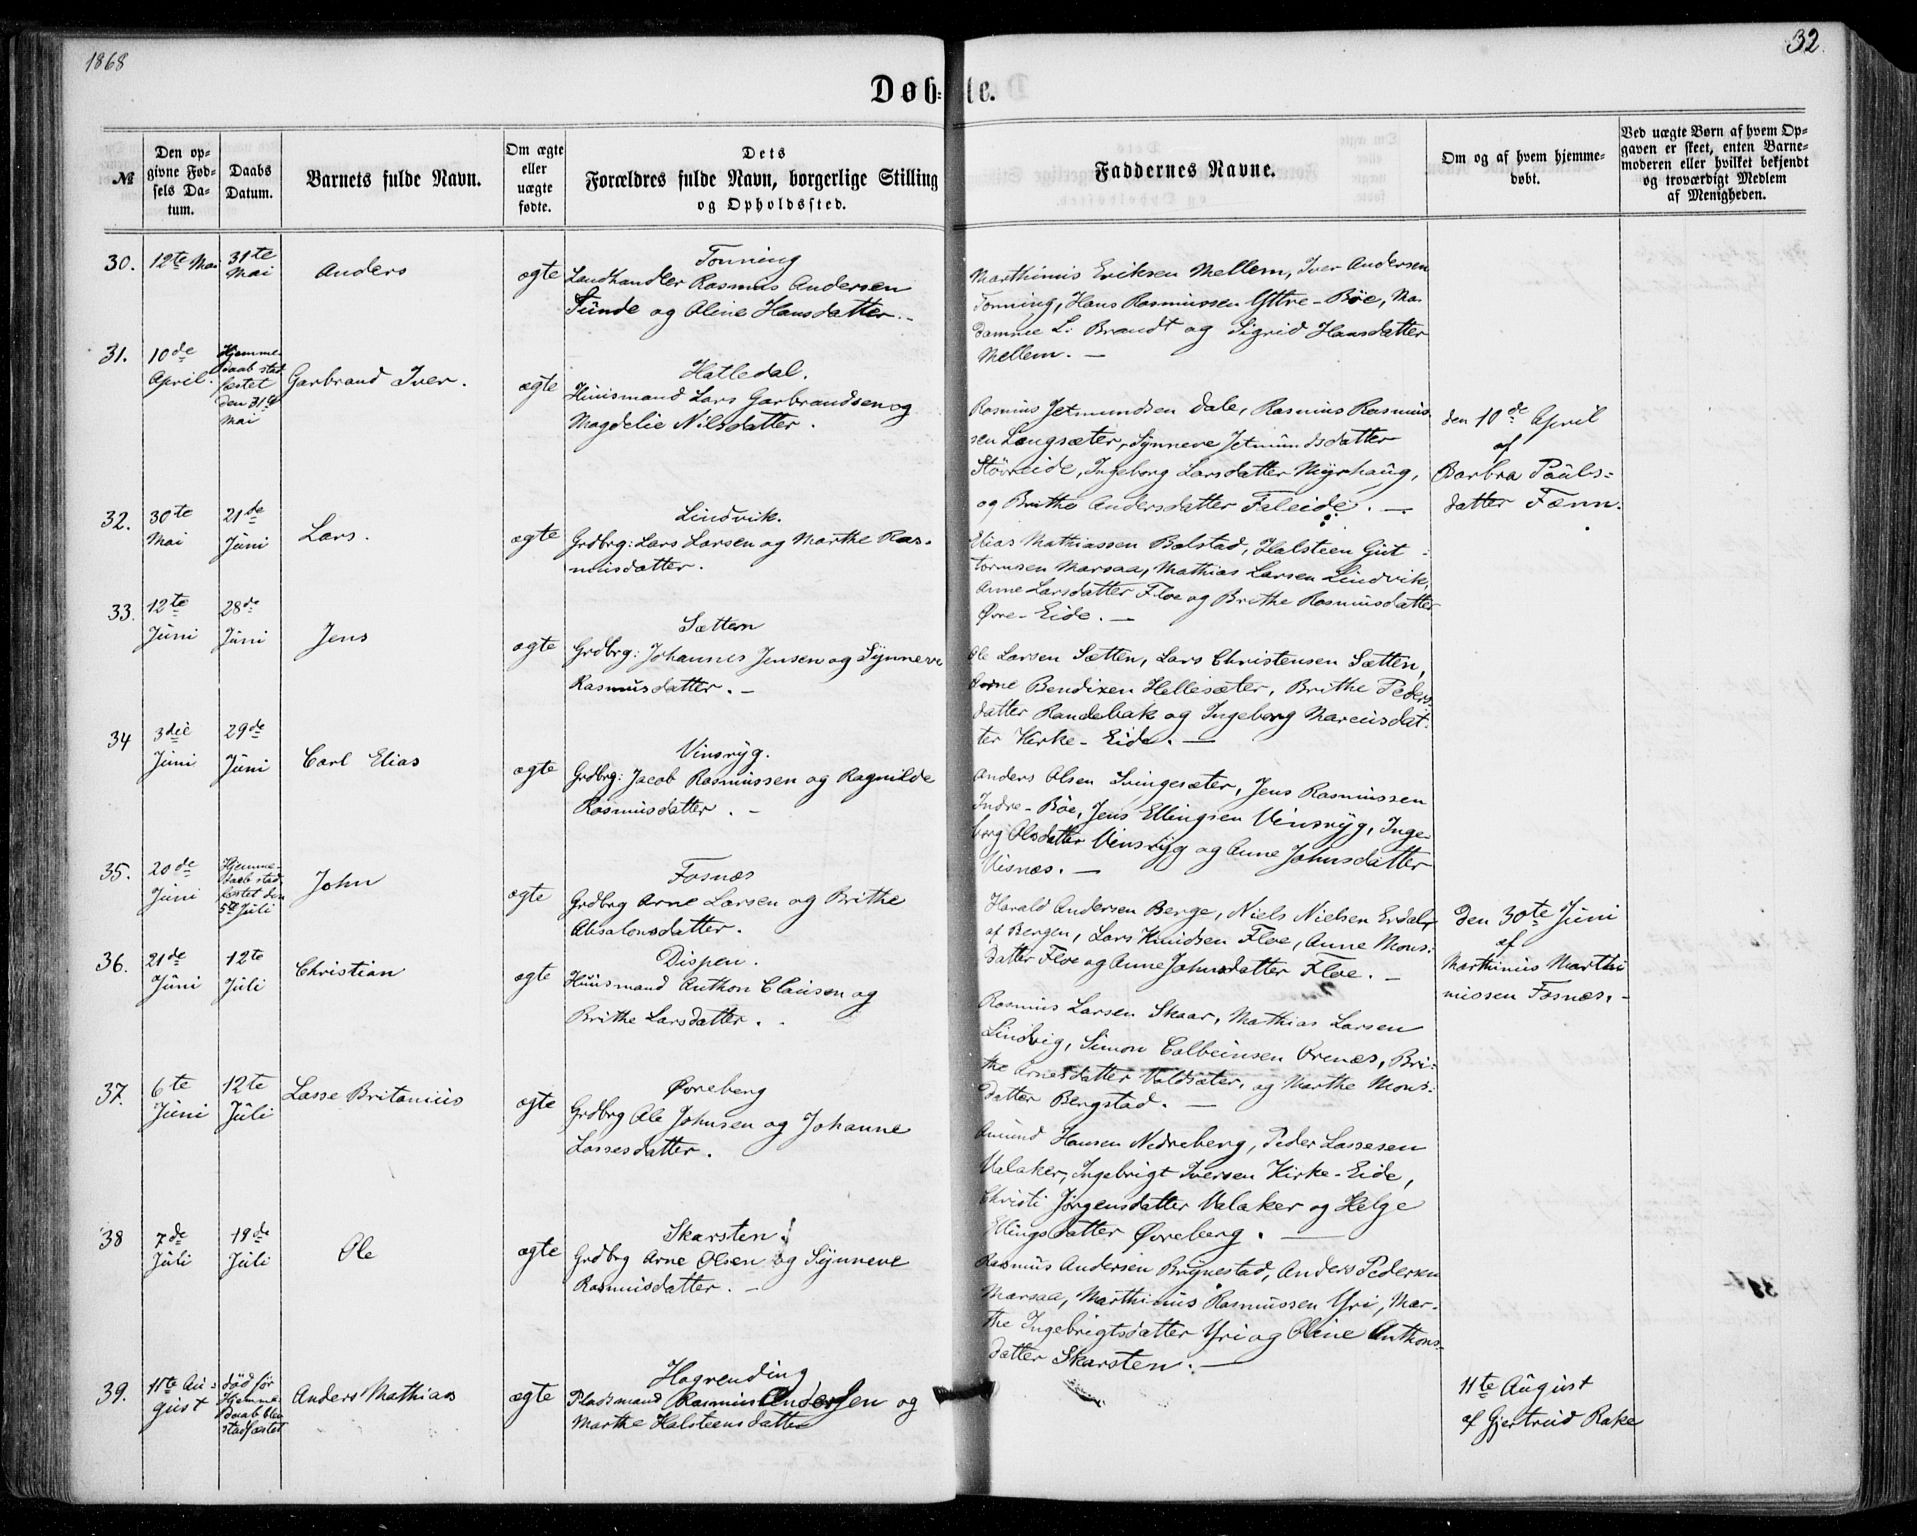 1868
32.
Døb-te.
№
Den op-
givne Fød-
sels Da-
tum.
Daabs
Datum.
Barnets fulde Navn.
Om ægte
eller
uægte
fødte.
Dets
Forældres fulde Navn, borgerlige Stilling
og Opholdssted.
Faddernes Navne.
Om og af hvem hjemme-
døbt.
Ved uægte Børn af hvem Op-
gaven er skeet, enten Barne-
moderen eller hvilket bekjendt
og troværdigt Medlem
af Menigheden.
30.
12te Mai
31te
Mai
Anders
ægte
Tonning
Landhandler Rasmus Andersen
Sunde og Oline Hansdatter. -
Marthinus Eriksen Mellem, Iver Andersen
Tonning, Hans Rasmussen Yttre-Böe, Ma-
damme L: Brandt og Sigrid Hansdatter
Mellem. -
31.
10de
April.
Hjemme-
daab stad
fæstet
den 31te
Mai
Garbrand Iver.
ægte
Hatledal.
Huusmand Lars Garbrandsen og
Magdelie Nilsdatter.
Rasmus Jetmundsen Dale, Rasmus Rasmus-
sen Langsæter, Synneve Jetmundsdatter
Störreide, Ingeborg Larsdatter Myrhaug,
og Brithe Andersdatter Faleide. -
den 10de April
af
Barbra Pauls-
datter Tænn.
32.
30te
Mai
21de
Juni
Lars.
ægte
Lindvik.
Grdbrg: Lars Larsen og Marthe Ras-
musdatter.
Elias Mathiassen Bolstad, Halsteen Gut-
tormsen Marsaa, Mathias Larsen Lindvik,
Anne Larsdatter Floe og Brithe Rasmusdatter
Øvre-Eide. -
33.
12te
Juni
28de
Juni
Jens
ægte
Sættem
Grdbrg: Johannes Jensen og Synneve
Rasmusdatter. -
Ole Larsen Sætten, Lars Christensen Sætten,
Arne Bendixen Hellesæter, Brithe Peders-
datter Randebak og Ingeborg Marcusdat-
ter Kirke-Eide. -
34
3die
Juni
29de
Juni
Carl Elias
ægte
Vinsryg.
Grdbrg: Jacob Rasmussen og Ragnilde
Rasmusdatter. -
Anders Olsen Svingesæter, Jens Rasmussen
Indre-Böe, Jens Ellingsen Vinsryg, Inge-
borg Olsdatter Vinsryg og Anne Johnsdatter
Visnæs. -
35.
20de
Juni
Hjemme-
daab stad
fæstet den
5te Juli
John
ægte
Fosnæs
Grdbrg Arne Larsen og Brithe
Absalonsdatter.
Harald Andersen Berge, Niels Nielsen Erdal
af Bergen, Lars Knudsen Floe, Anne Mons-
datter Floe og Anne Johnsdatter Floe. -
Den 30te Juni
af
Marthinus Marthi
nussen Fosnæs. -
36.
21de
Juni
12te
Juli
Christian
ægte
Dispen.
Huusmand Anthon Clausen og
Brithe Larsdatter.
Rasmus Larsen Skaar, Mathias Larsen
Lindvig, Simon Colbeinsen Orenæs, Bri-
the Arnesdatter Valdsæter, og Marthe Mons-
datter Bergstad. -
37.
6te
Juni
12te
Juli
Lasse Britanius
ægte
Øvreberg
Grdbrg Ole Johnsen og Johanne
Lassesdatter.
Amund Hansen Nedreberg, Peder Lassesen
Valaker, Ingebrigt Iversen Kirke-Eide,
Christi Jørgensdatter Valaker og Helge
Ellingsdatter Øvreberg. -
38
7de
Juli
19de
Juli
Ole
ægte
Skarsten
Grdbrg Arne Olsen og Synneve
Rasmusdatter. -
Rasmus Andersen Brynestad, Anders Pedersen
Marsaa, Marthinus Rasmussen Yri, Mar-
the Ingebrigtsdatter Yri og Oline Anthons-
datter Skarsten. -
39.
11te Au-
gust
død før
Hjemme
daab blev
stadfæstet
Anders Mathias
ægte
Hagrending
Pladsmand Rasmus Andersen og
Marthe Halsteensdatter
11te August
af Gjertrud Rake